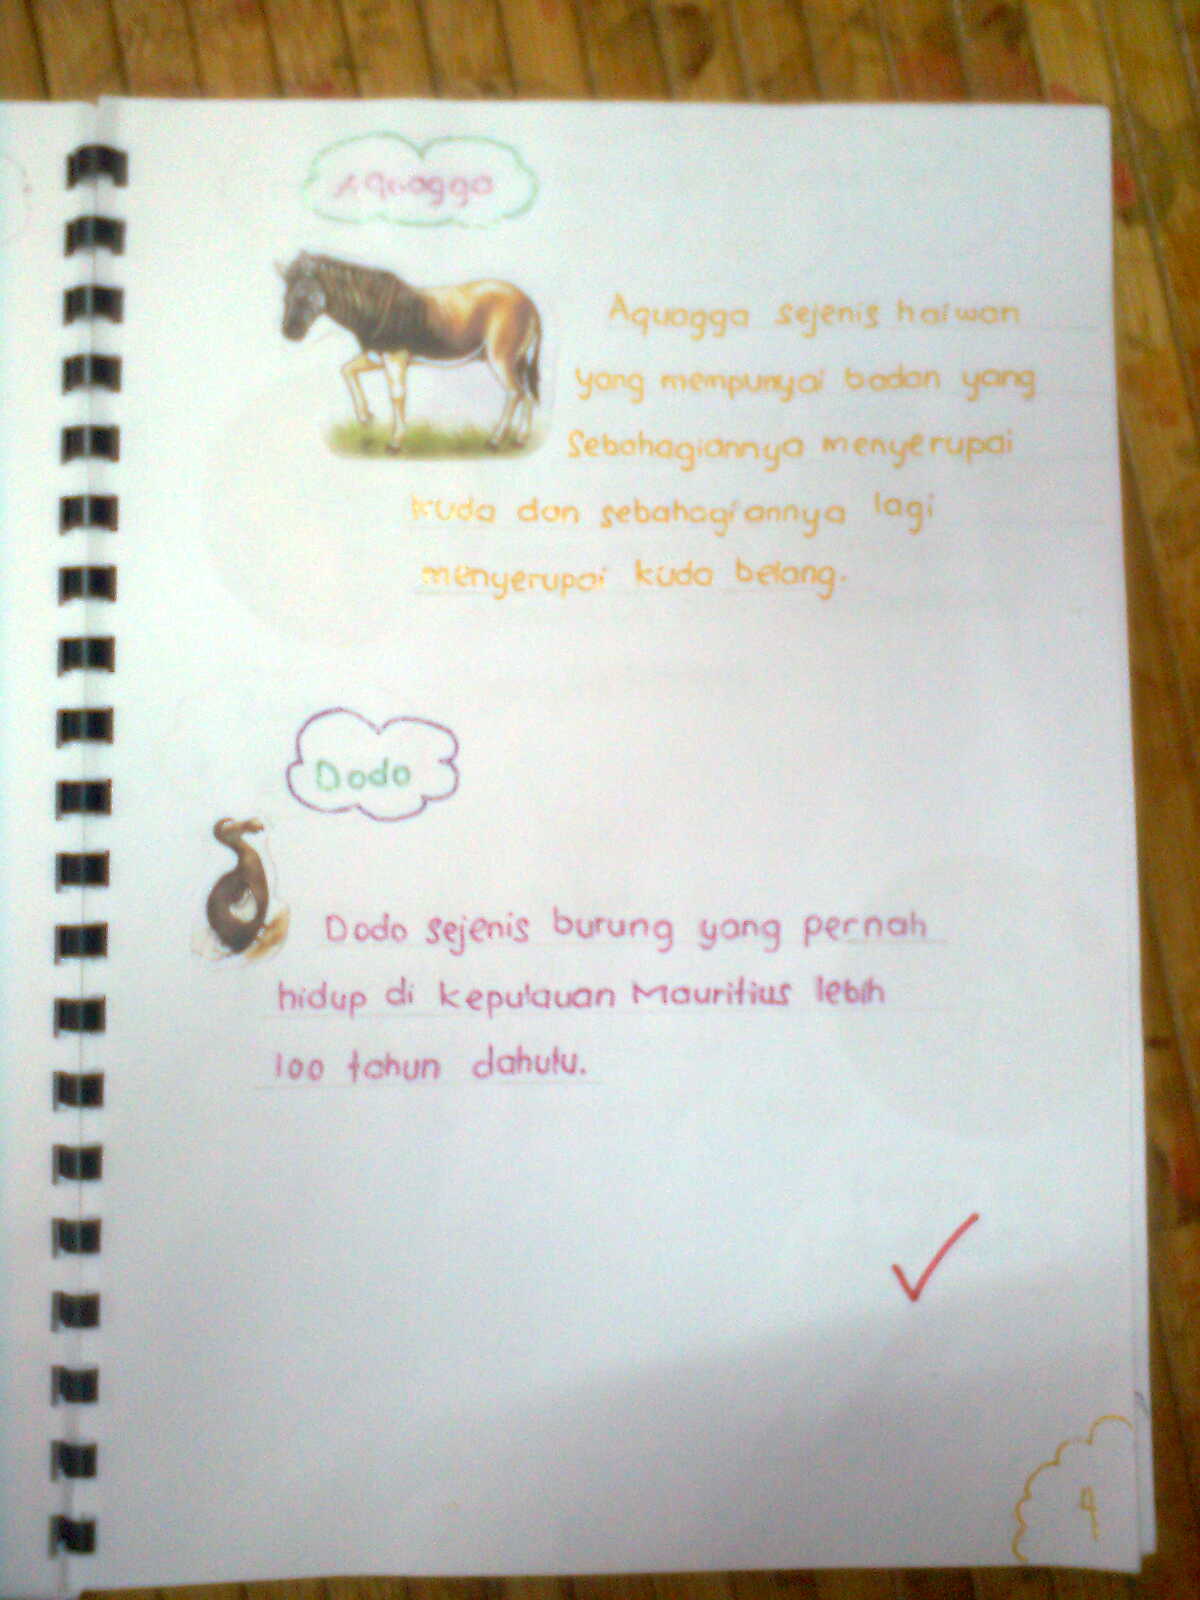 Aquagga
Aquagga sejenis haiwan
yang mempunyai badan yang
Sebahagiannya menyerupai
kuda dan sebahagiannya lagi
menyerupai kuda belang.
Dodo
Dodo sejenis burung yang pernah
hidup di kepulauan Mauritius lebih
100 tahun dahulu.
4